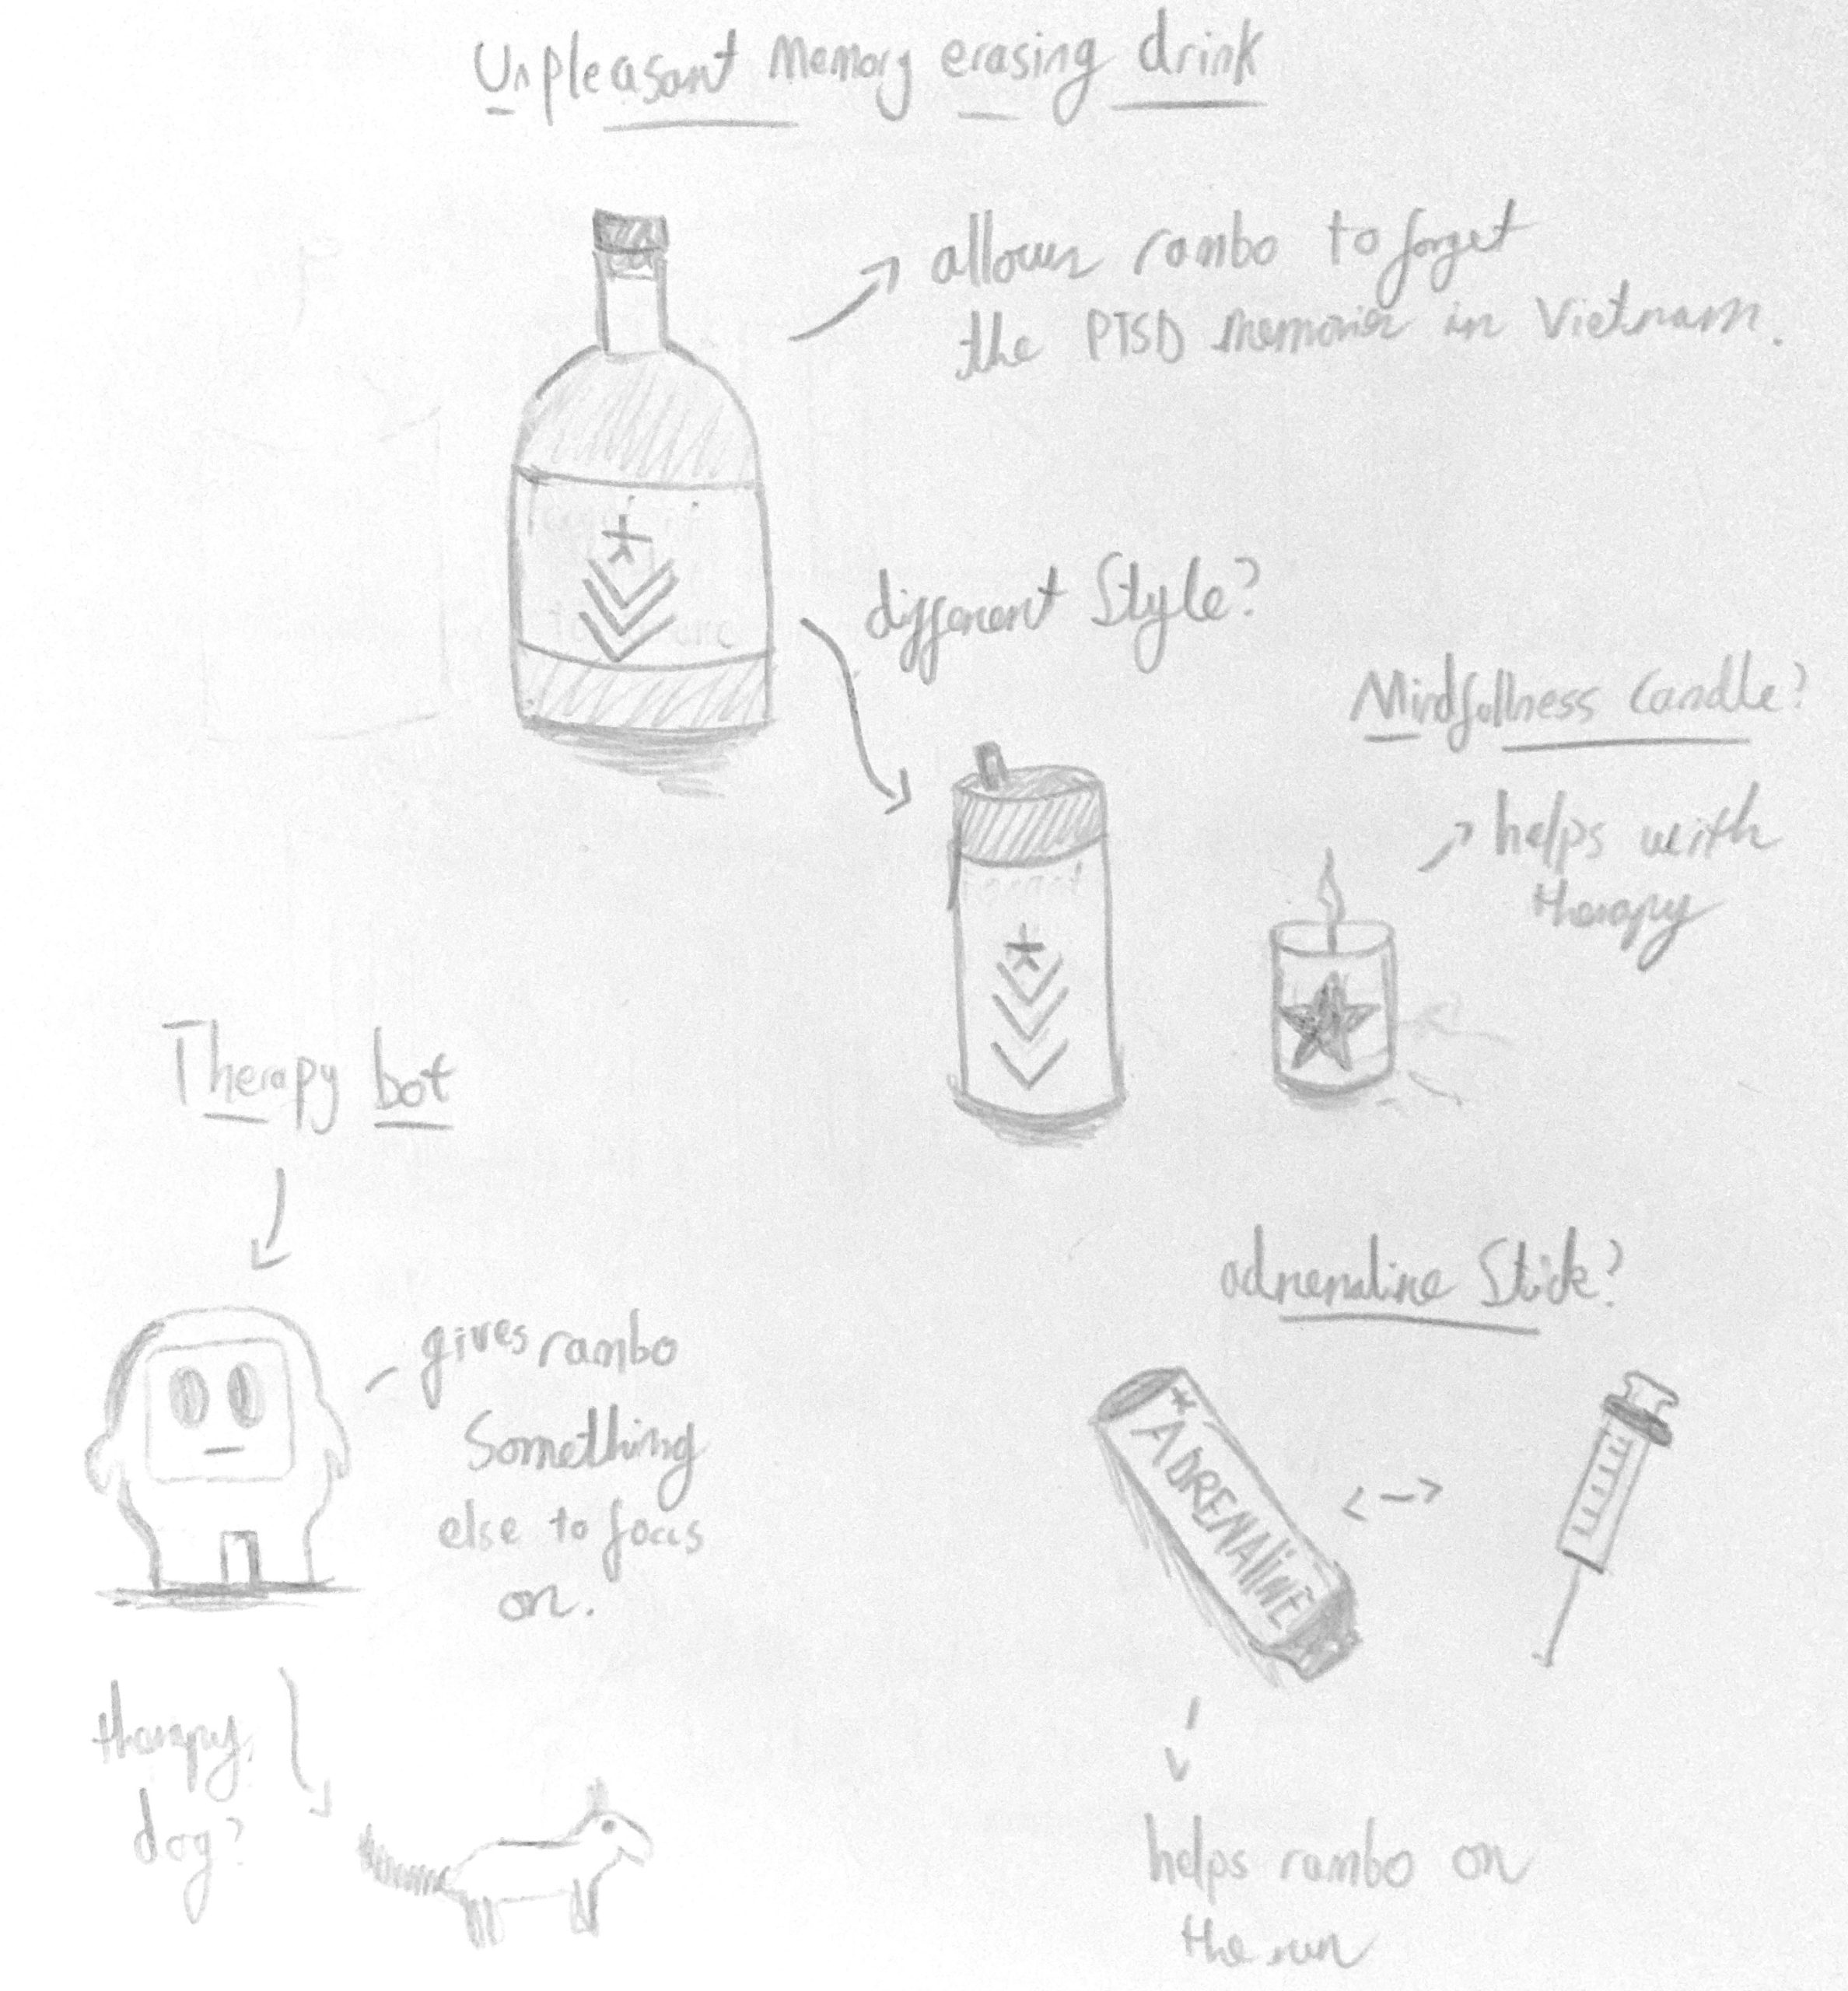 Unpleasant Memory erasing drink
allows rambo to forget
the PTSD memories in Vietnam.
different Style?
Mindfullness Candle?
helps with
therapy
Therapy bot
gives rambo
Something
else to focus
on.
therapy
dog?
adrenaline Stick?
ADRENAliNE
helps rambo on
the run